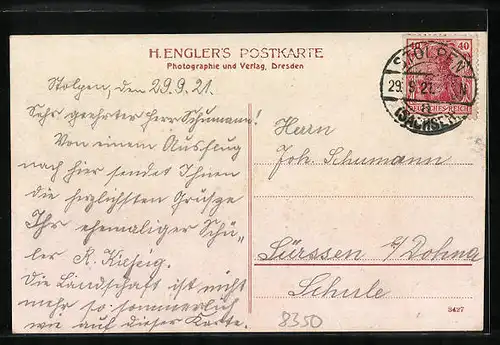 H. ENGLER'S POSTKARTE
Photographie und Verlag, Dresden
Stolpen, den 29.9.21.
Sehr geehrter Herr Schumann!
Von einem Ausflug
nach hier sendet Ihnen
die herzlichsten Grüsze
Ihr ehemaliger Schü-
ler R.
Die Landschaft ist nicht
mehr so sommerlich
wie auf dieser Karte.
40 40
DEUTSCHES REICH
STOLPEN
29.9.21.
(SACHSEN)
Herrn
Joh. Schumann
Sürssen b/Dohna
Schule
3427
8350